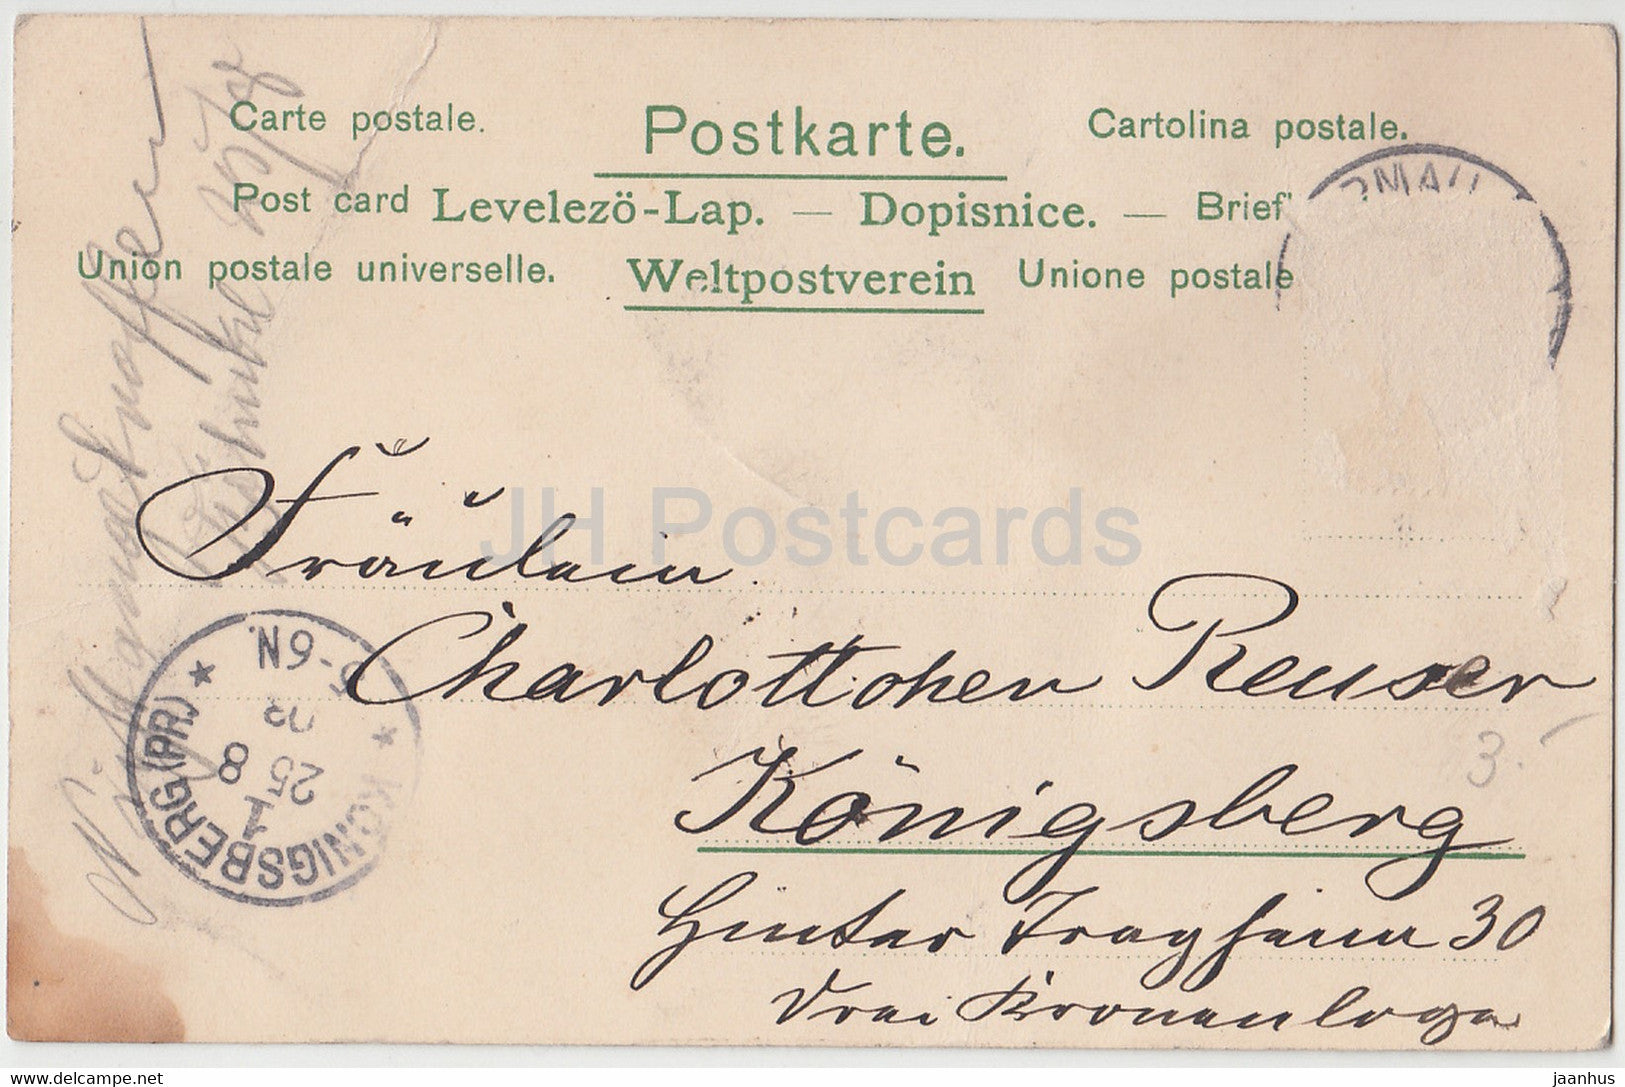 Carte postale. Postkarte. Cartolina postale.
Post card Levelezö-Lap. — Dopisnice. — Brief
Union postale universelle. Weltpostverein Unione postale
RMAU
JH Postcards
Fräulein
Charlottchen Reuser
Königsberg
Hinter Tragheim 30
Drei Kronenloge
3.
KÖNIGSBERG (PR.)
5-6N.
25 8
03
1
delcampe.net
jaanhus